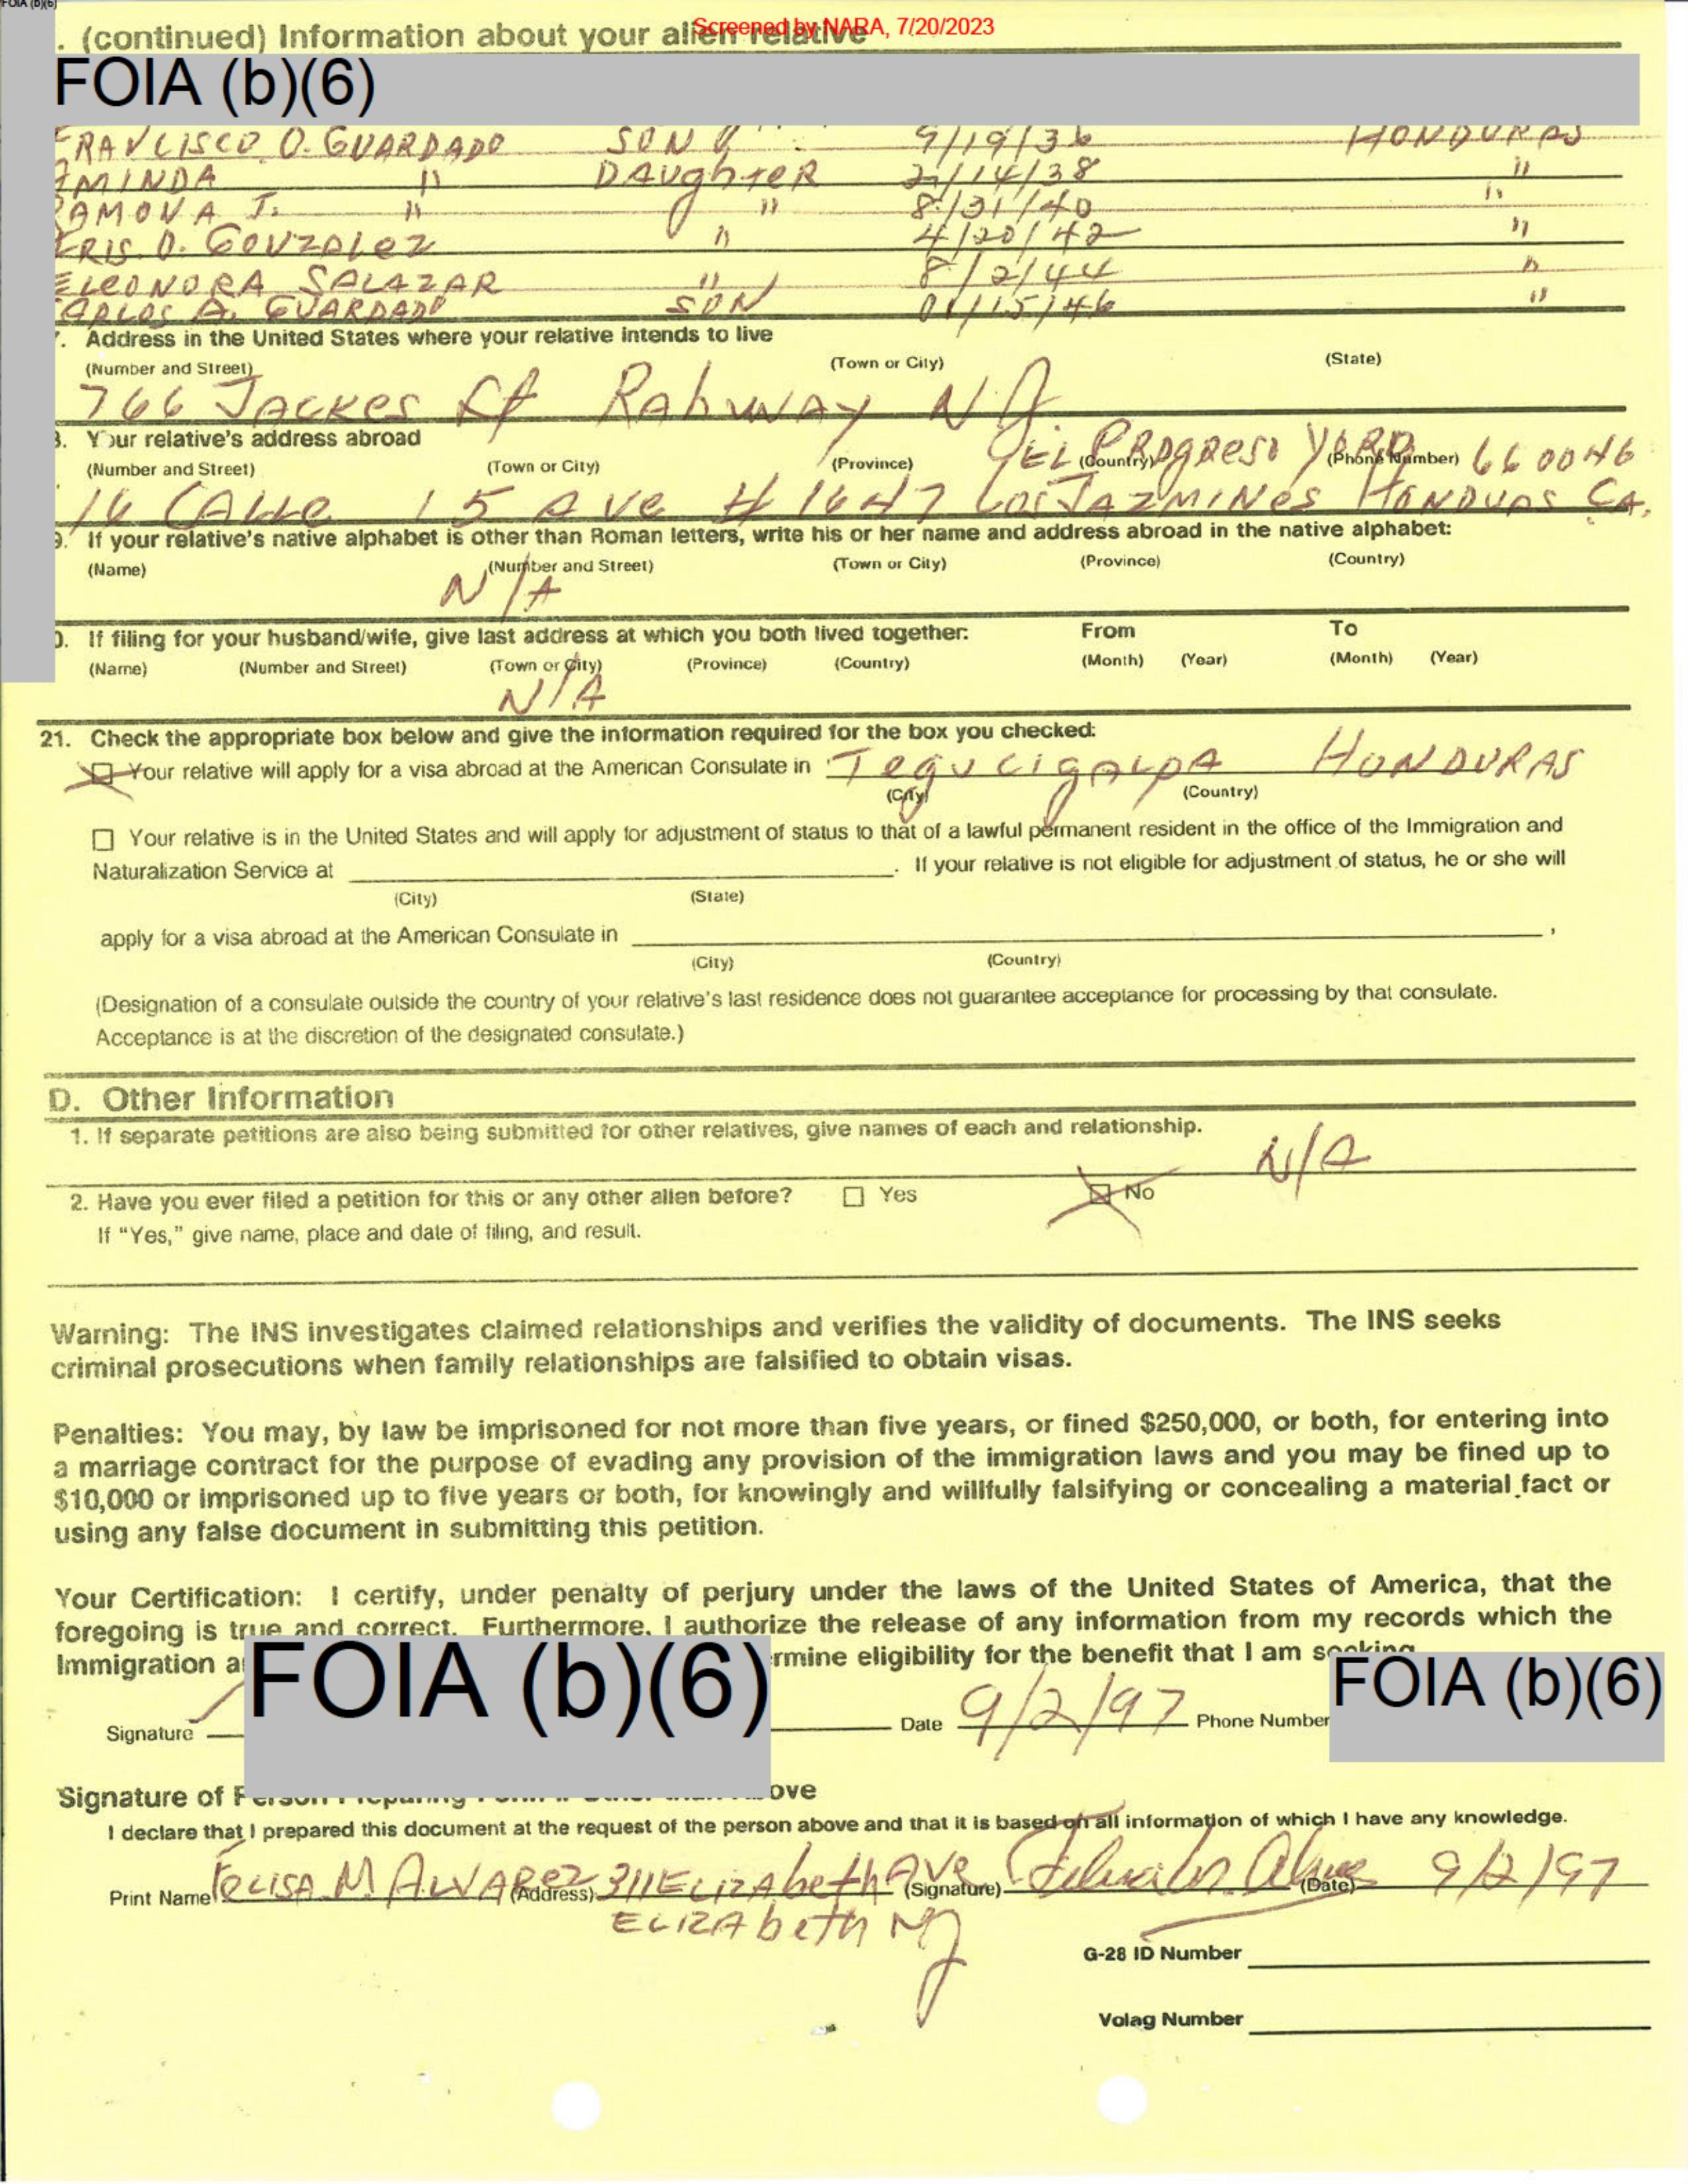 FOIA (b)(6)
Screened by NARA, 7/20/2023
. (continued) Information about your alien relative
FOIA (b)(6)
FRANCISCO O. GUARDADO SON 9/19/36 HONDURAS
MINDA " DAUghTER 2/14/38 "
RAMONA J. " " 8/31/40 "
RIS O. GONZALEZ " 4/20/42 "
ELEONORA SALAZAR " 8/2/44 "
CARLOS A. GUARDADO SON 01/15/46 "
. Address in the United States where your relative intends to live
(Number and Street) (Town or City) (State)
766 JACKES St RAhWAY NJ
. Your relative's address abroad
(Number and Street) (Town or City) (Province) (Country) (Phone Number) 660046
EL PROgReso YORO
16 CAlle 15 AVe # 1647 Los JAZMINES HONDUAS CA.
. If your relative's native alphabet is other than Roman letters, write his or her name and address abroad in the native alphabet:
(Name) (Number and Street) (Town or City) (Province) (Country)
N/A
. If filing for your husband/wife, give last address at which you both lived together: From To
(Name) (Number and Street) (Town or City) (Province) (Country) (Month) (Year) (Month) (Year)
N/A
21. Check the appropriate box below and give the information required for the box you checked:
Your relative will apply for a visa abroad at the American Consulate in TegucigALpA HONDURAS
(City) (Country)
Your relative is in the United States and will apply for adjustment of status to that of a lawful permanent resident in the office of the Immigration and
Naturalization Service at . If your relative is not eligible for adjustment of status, he or she will
(City) (State)
apply for a visa abroad at the American Consulate in ,
(City) (Country)
(Designation of a consulate outside the country of your relative's last residence does not guarantee acceptance for processing by that consulate.
Acceptance is at the discretion of the designated consulate.)
D. Other Information
1. If separate petitions are also being submitted for other relatives, give names of each and relationship.
N/A
2. Have you ever filed a petition for this or any other alien before? Yes No
If "Yes," give name, place and date of filing, and result.
Warning: The INS investigates claimed relationships and verifies the validity of documents. The INS seeks
criminal prosecutions when family relationships are falsified to obtain visas.
Penalties: You may, by law be imprisoned for not more than five years, or fined $250,000, or both, for entering into
a marriage contract for the purpose of evading any provision of the immigration laws and you may be fined up to
$10,000 or imprisoned up to five years or both, for knowingly and willfully falsifying or concealing a material fact or
using any false document in submitting this petition.
Your Certification: I certify, under penalty of perjury under the laws of the United States of America, that the
foregoing is true and correct. Furthermore, I authorize the release of any information from my records which the
Immigration a FOIA (b)(6) rmine eligibility for the benefit that I am seeking.
Signature Date 9/2/97 Phone Number FOIA (b)(6)
Signature of Person Preparing Form if Other than Above
I declare that I prepared this document at the request of the person above and that it is based on all information of which I have any knowledge.
Print Name FELISA M ALVAREZ (Address) 311 ELIZAbeth AVe (Signature) (Date) 9/2/97
ELIZAbeth NJ
G-28 ID Number
Volag Number